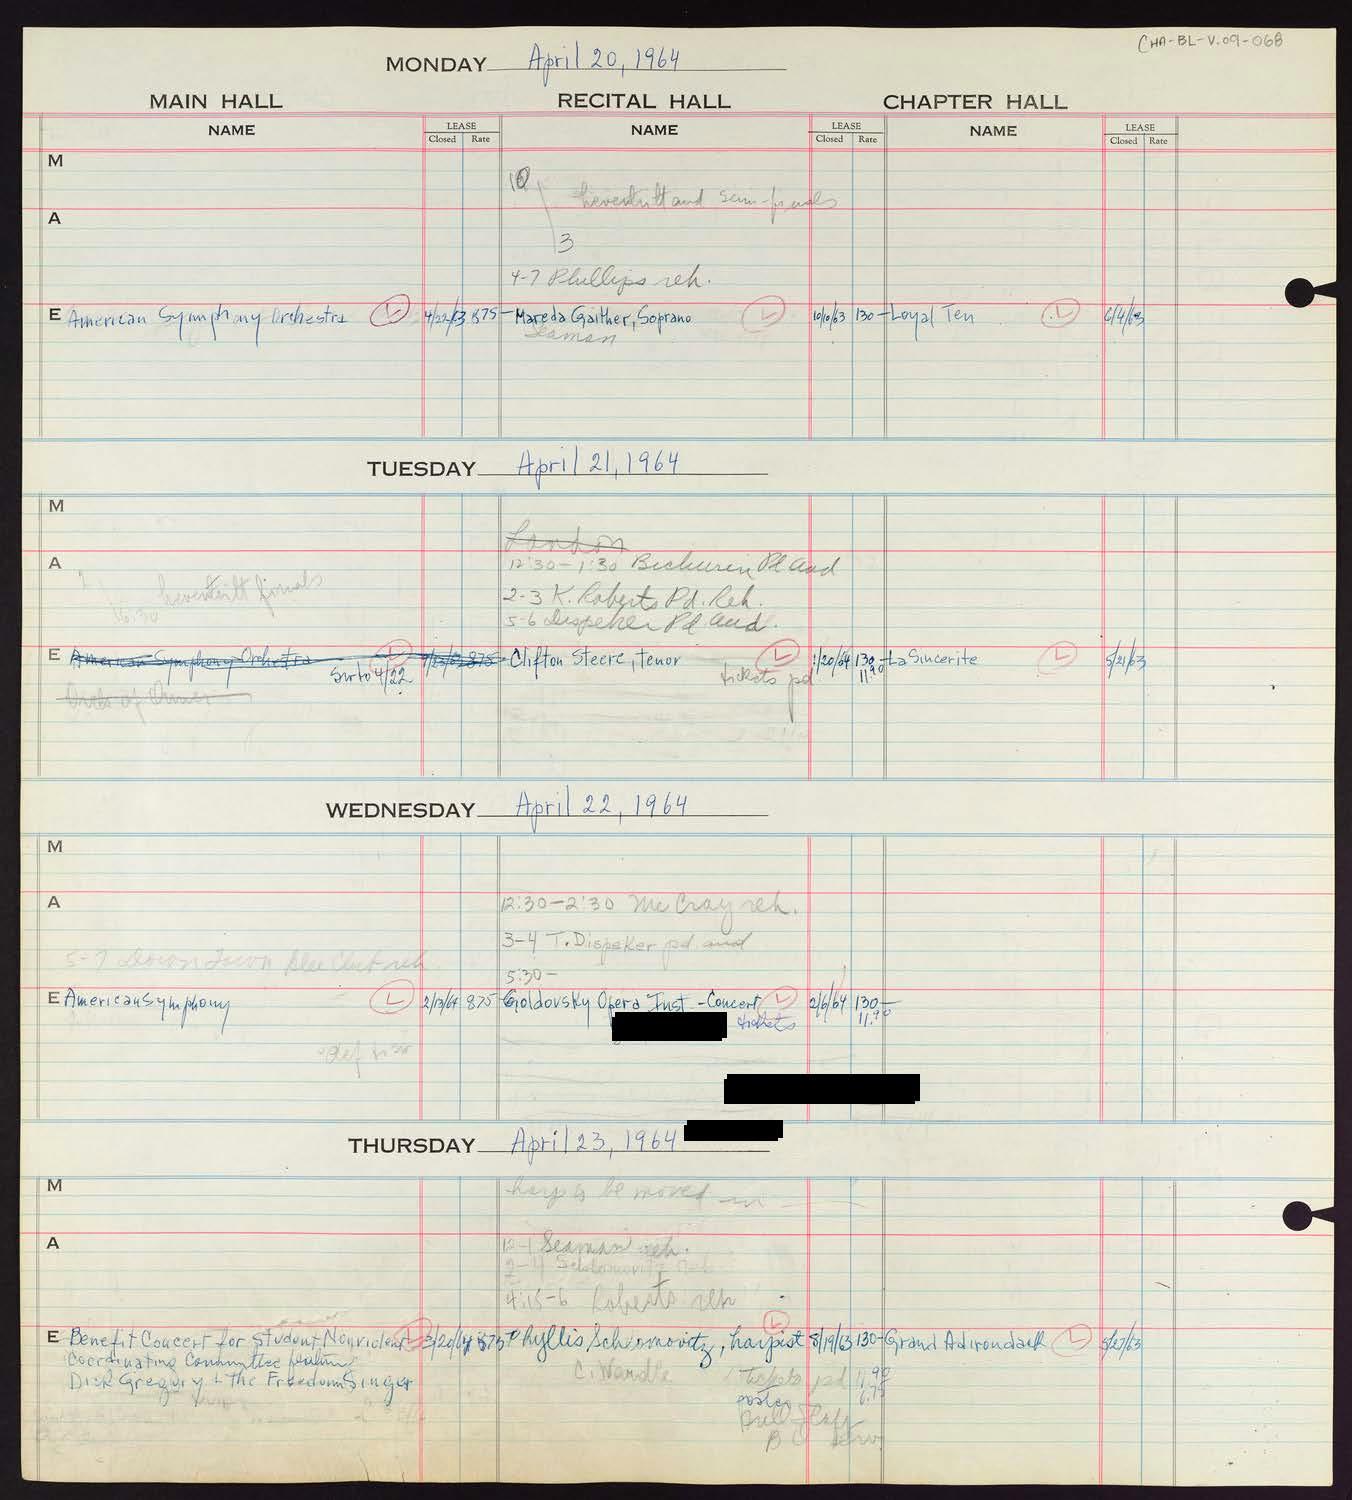 CHA-BL-V.09-068
MONDAY April 20, 1964
MAIN HALL RECITAL HALL CHAPTER HALL
NAME LEASE NAME LEASE NAME LEASE
Closed Rate Closed Rate Closed Rate
M
10
Leventritt and semi-finals
A
3
4-7 Phillips reh.
E American Symphony Orchestra L 4/22/63 875- Mareda Gaither, Soprano L 10/10/63 130- Loyal Ten L 6/4/63
Seaman
TUESDAY April 21, 1964
M
London
A 12:30-1:30 Bichurin Pd Aud
Leventritt finals
6:30
2-3 K. Roberts Pd. Reh.
5-6 Dispeker Pd Aud.
E American Symphony Orchestra L 875- Clifton Steere, tenor L 1/20/64 130- La Sincerite L 5/21/63
Sw to 4/22 tickets pd 11.90
WEDNESDAY April 22, 1964
M
A 12:30-2:30 McCray reh.
3-4 T. Dispeker pd aud
5-7 Down Town Glee Club reh.
5:30-
E American Symphony L 2/13/64 875- Goldovsky Opera Inst - Concert L 2/6/64 130-
tickets 11.90
THURSDAY April 23, 1964
M harp to be moved in
A 12-1 Seaman reh.
2-4
4:15-6 Roberts reh
E Benefit Concert for Student Nonviolent L 3/20/64 875- Phyllis Schlomovitz, harpist L 8/19/63 130- Grand Adirondack L 5/27/63
Coordinating Committee featuring C. Wardle tickets pd 11.90
Dick Gregory & the Freedom Singers poster 6.75